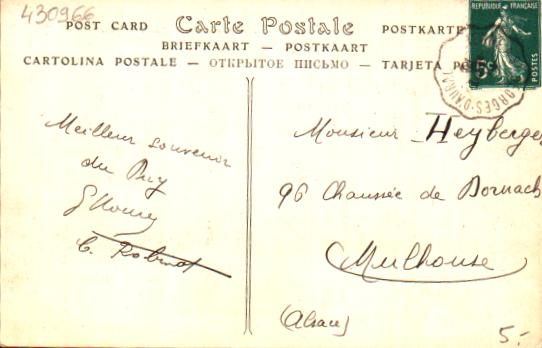 430966
POST CARD Carte Postale POSTKARTE
BRIEFKAART — POSTKAART
CARTOLINA POSTALE — ОТКРЫТОЕ ПИСЬМО — TARJETA
REPUBLIQUE FRANÇAISE
5c
POSTES
Meilleur souvenir
du Puy
C. Robinot
Monsieur Heyberger
96 Chaussée de Dornach
Mulhouse
(Alsace)
5.-